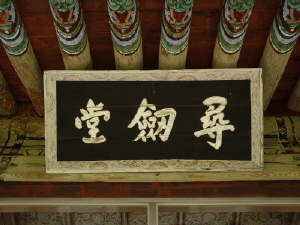 尋劒堂